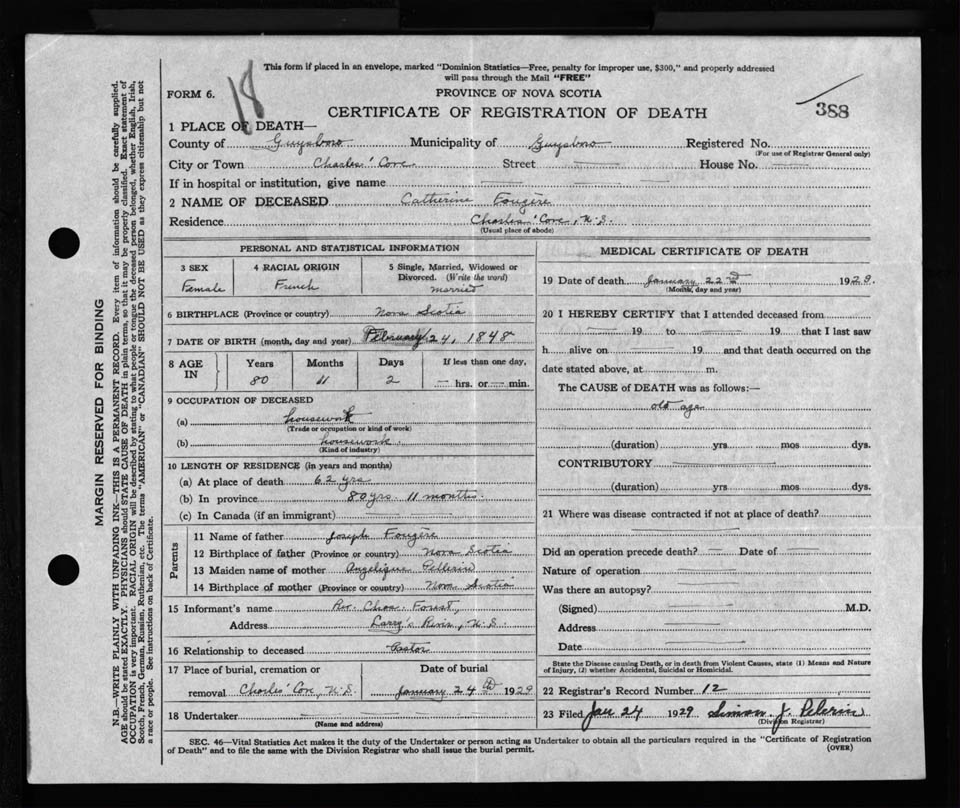 This form if placed in an envelope, marked "Dominion Statistics—Free, penalty for improper use, $300," and properly addressed
will pass through the Mail "FREE"
18
FORM 6.
PROVINCE OF NOVA SCOTIA
CERTIFICATE OF REGISTRATION OF DEATH
388
1 PLACE OF DEATH—
County of Guysboro Municipality of Guysboro Registered No.
(For use of Registrar General only)
City or Town Charles' Cove Street — House No. —
If in hospital or institution, give name — — —
2 NAME OF DECEASED Catherine Fougère
Residence Charles' Cove, N.S.
(Usual place of abode)
PERSONAL AND STATISTICAL INFORMATION
3 SEX
Female
4 RACIAL ORIGIN
French
5 Single, Married, Widowed or
Divorced. (Write the word)
married
6 BIRTHPLACE (Province or country) Nova Scotia
7 DATE OF BIRTH (month, day and year) February 24, 1848
8 AGE IN
Years
80
Months
11
Days
2
If less than one day,
— hrs. or — min.
9 OCCUPATION OF DECEASED
(a) housework
(Trade or occupation or kind of work)
(b) housework.
(Kind of industry)
10 LENGTH OF RESIDENCE (in years and months)
(a) At place of death 62 yrs
(b) In province 80 yrs. 11 months.
(c) In Canada (if an immigrant) — —
Parents
11 Name of father Joseph Fougère
12 Birthplace of father (Province or country) Nova Scotia
13 Maiden name of mother Angelique Pellerin
14 Birthplace of mother (Province or country) Nova Scotia
15 Informant's name Rev. Chas. Forest,
Address Larry's River, N.S.
16 Relationship to deceased Pastor
17 Place of burial, cremation or
removal Charles' Cove, N.S.
Date of burial
January 24th 1929
18 Undertaker — —
(Name and address)
MEDICAL CERTIFICATE OF DEATH
19 Date of death January 22d 1929.
(Month, day and year)
20 I HEREBY CERTIFY that I attended deceased from
— 19 — to — 19 — that I last saw
h — alive on — 19 — and that death occurred on the
date stated above, at — m.
The CAUSE of DEATH was as follows:—
old age
(duration) yrs mos dys.
CONTRIBUTORY —
(duration) yrs mos dys.
21 Where was disease contracted if not at place of death?
Did an operation precede death? — Date of —
Nature of operation — —
Was there an autopsy? — —
(Signed) — — M.D.
Address — —
Date — —
State the Disease causing Death, or in death from Violent Causes, state (1) Means and Nature
of Injury, (2) whether Accidental, Suicidal or Homicidal.
22 Registrar's Record Number 12
23 Filed Jan 24 1929 Simon J. Pelerin
(Division Registrar)
SEC. 46—Vital Statistics Act makes it the duty of the Undertaker or person acting as Undertaker to obtain all the particulars required in the "Certificate of Registration
of Death" and to file the same with the Division Registrar who shall issue the burial permit.
(OVER)
MARGIN RESERVED FOR BINDING
N.B.—WRITE PLAINLY WITH UNFADING INK—THIS IS A PERMANENT RECORD. Every item of information should be carefully supplied.
AGE should be stated EXACTLY. PHYSICIANS should STATE CAUSE OF DEATH in plain terms, so that it may be properly classified. Exact statement of
OCCUPATION is very important. RACIAL ORIGIN will be described by stating to what people or tongue the deceased person belonged, whether English, Irish,
Scotch, French, German, Russian, Ruthenian, etc. The terms "AMERICAN" or "CANADIAN" SHOULD NOT BE USED as they express citizenship but not
a race or people. See instructions on back of Certificate.